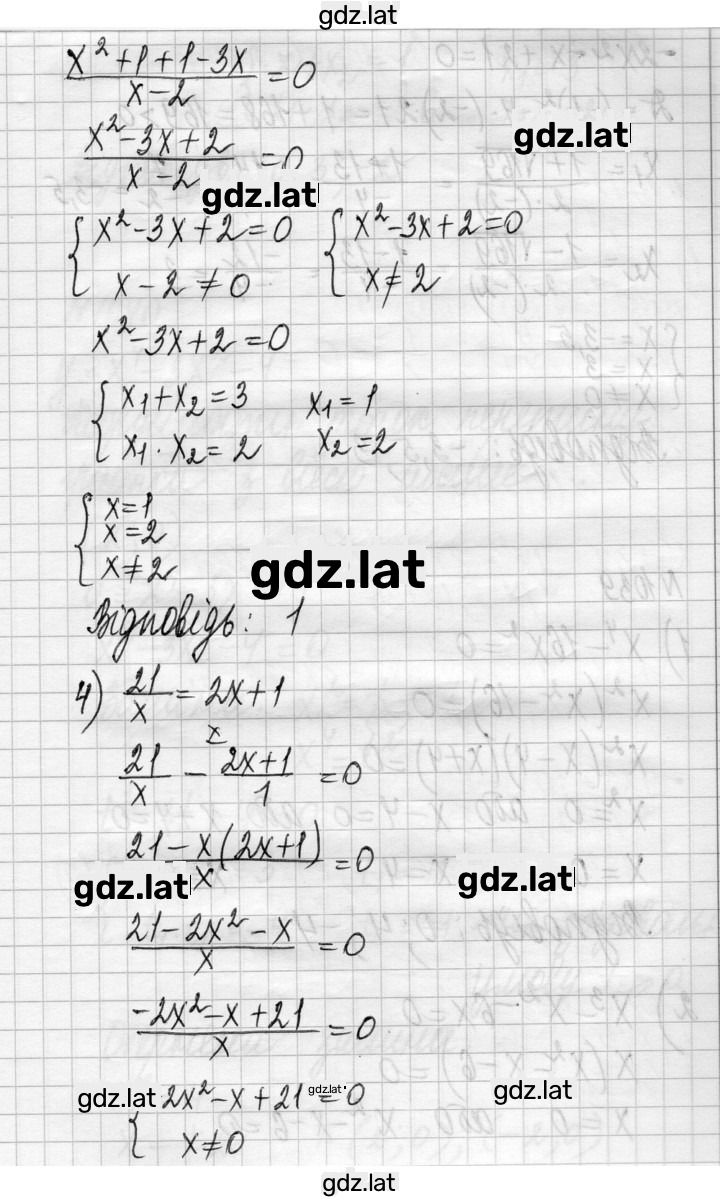 gdz.lat
x² + 1 + 1 - 3x / x - 2 = 0
gdz.lat
x² - 3x + 2 / x - 2 = 0
gdz.lat
{ x² - 3x + 2 = 0 { x² - 3x + 2 = 0
x - 2 ≠ 0 x ≠ 2
x² - 3x + 2 = 0
{ x₁ + x₂ = 3 x₁ = 1
x₁ · x₂ = 2 x₂ = 2
{ x = 1
x = 2
x ≠ 2
gdz.lat
Відповідь: 1
4) 21 / x = 2x + 1
21 / x - 2x + 1 / 1 = 0
x
21 - x(2x + 1) / x = 0
gdz.lat gdz.lat
21 - 2x² - x / x = 0
-2x² - x + 21 / x = 0
gdz.lat gdz.lat gdz.lat
{ 2x² - x + 21 = 0
x ≠ 0
gdz.lat